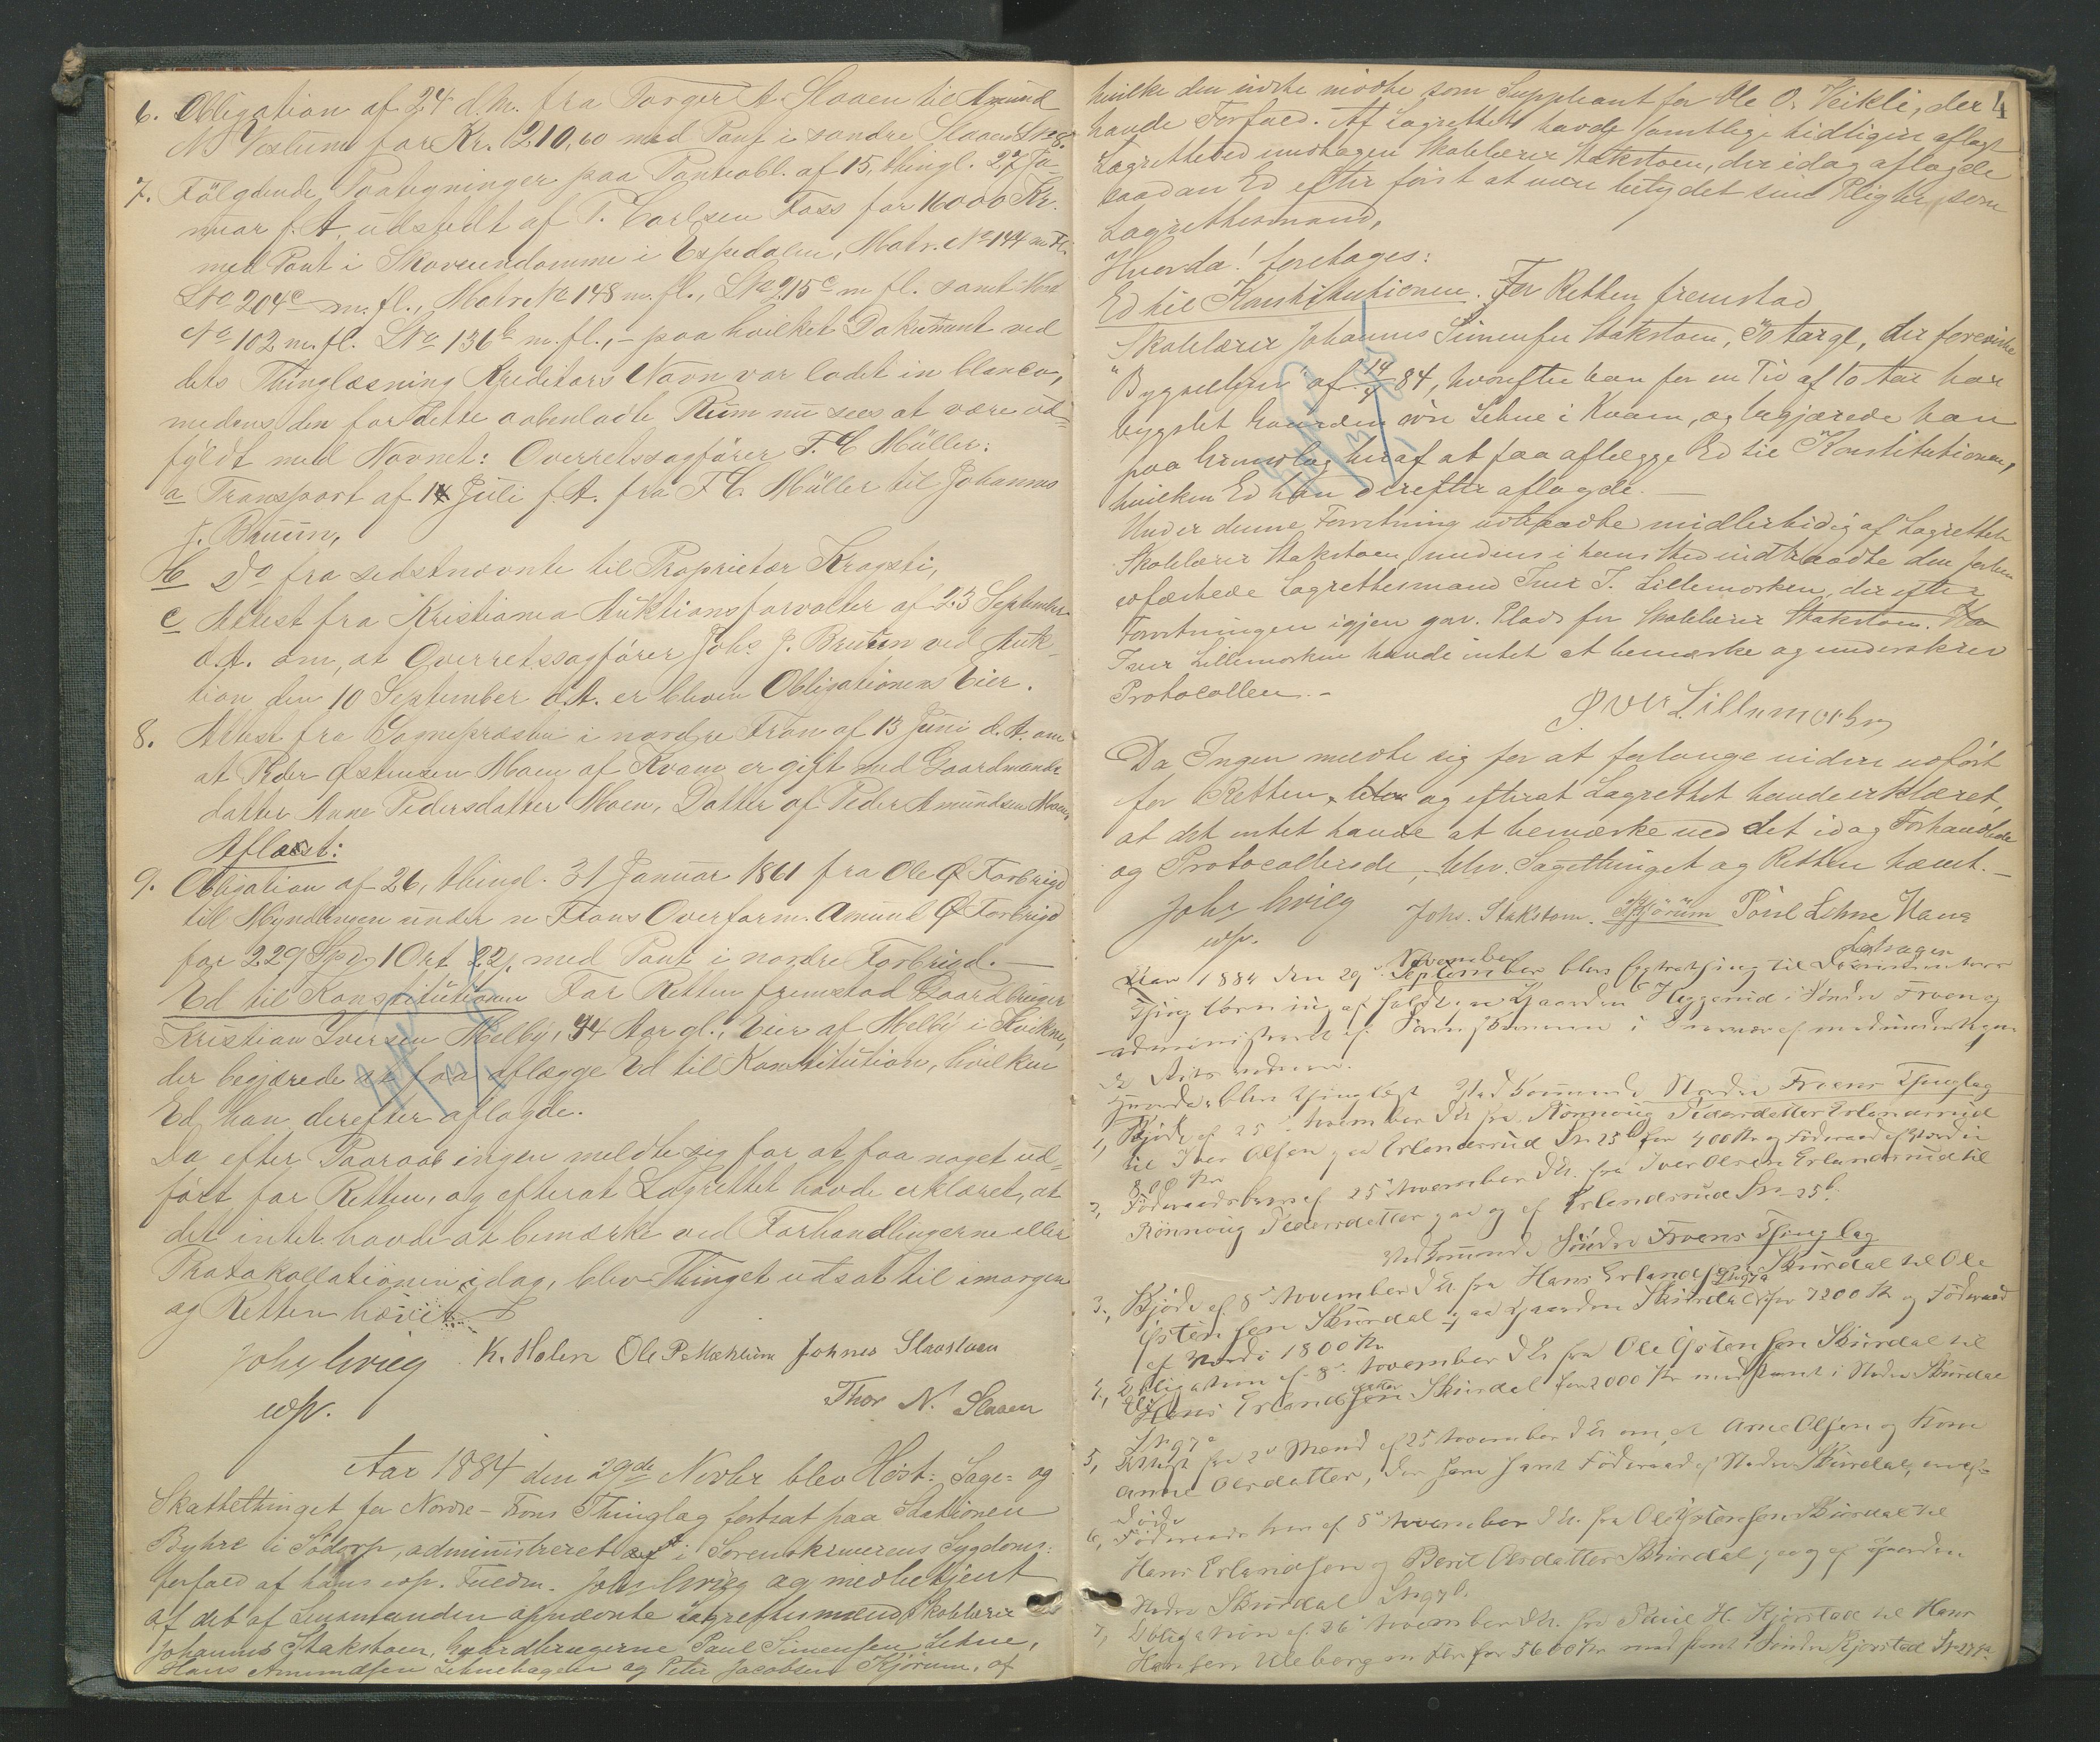 6. Obligation af 24 d.M. fra Torger A. Slaaen til Amund
N. Veslum for Kr. 210,60 med Pant i søndre Slaaen L No 8.
7. Følgende Paategninger paa Panteobl. af 15, thingl. 27 Ja-
nuar f. A. udstedt af P. Carlsen Foss for 16000 Kr.
med Pant i Skoveiendomme i Espedalen, Matr. No 144 m. fl.
LNo 204c m. fl., Matr No 148 m. fl., LNo 215c m fl. samt Matr
No 102 m. fl. LNo 136b m. fl., - paa hvilket Dokument ved
dets Thinglæsning Kreditors Navn var ladet in blanco,
medens den for dette aabenladte Rum nu sees at være ud=
fyldt med Navnet: Overretssagfører F. C. Müller:
a Transport af 14 Juli f. A. fra F C. Müller til Johannes
J. Bruun,
b Do fra sidstnævnte til Proprietær Krogsti,
c Attest fra Kristiania Auktionsforvalter af 23 September
d.A. om, at Overretssagfører Johs J. Bruun ved Auk-
tion den 10 September d.A. er bleven Obligationens Eier.
8. Attest fra Sognepræsten i nordre Fron af 13 Juni d. A. om
at Peder Østensen Moen af Kvam er gift med Gaardmands
datter Anne Pedersdatter Moen, Datter af Peder Amundsen Moen,
Aflæst:
9. Obligation af 26, thingl. 31 Januar 1861 fra Ole Ø Forbrigd
til Myndlingen under n Frons Overform. Amund Ø Forbrigd
for 229 Spd. 1 Ort 22 s. med Pant i nordre Forbrigd. —
Ed til Konstitutionen For Retten fremstod Gaardbruger
Kristian Iversen Melby, 44 Aar gl., Eier af Melby i Skikne,
der begjærede at faa aflægge Ed til Konstitution, hvilken
Ed han derefter aflagde.
Da efter Paaraab ingen meldte sig for at faa noget ud=
ført for Retten, og efterat Lagrettet havde erklæret, at
det intet havde at bemærke ved Forhandlingerne eller
Protokollationen idag, blev Thinget udsat til imorgen
og Retten hævet.
Johs Grieg K. Holen Ole P. Mæhlum Johnes Slaastuen
cst. Thor N. Slaaen
Aar 1884 den 29de Novbr blev Høst= Sage= og
Skattethinget for Nordre-Frons Thinglag fortsat paa Stationen
Byhre i Sødorp, administreret i Sorenskriverens Sygdoms=
forfald af hans cst. Fuldm. Johs Grieg og medbetjent
af det af Lensmanden opnævnte Lagrettesmænd Skolelærer
Johannes Stakstoen, Gaardbrugerne Paul Simensen Lehne,
Hans Amundsen Lehnehagen og Peter Jacobsen Kjørum, af
4
hvilke den sidste mødte som Suppleant for Ole O. Veikle, der
havde Forfald. Af Lagrettet havde samtlige tidligere aflagt
Lagretteed undtagen Skolelærer Stakstoen, der idag aflagde
saadan Ed efter først at være betydet sine Pligter som
Lagrettesmand,
Hvorda! foretages:
Ed til Konstitutionen. For Retten fremstod
Skolelærer Johannes Simensen Stakstoen, 50 Aar gl, der foreviste
Bygselbrev af 14/4 84, hvorefter han for en Tid af 10 Aar har
bygslet Gaarden øvre Lehne i Kvam, og begjærede han
paa Grundlag heraf at faa aflægge Ed til Konstitutionen,
hvilken Ed han derefter aflagde. —
Under denne Forretning udtraadte midlertidig af Lagrettet
Skolelærer Stakstoen, medens i hans Sted indtraadte den forhen
edfæstede Lagrettesmand Iver I. Lillemorken, der efter
Forretningen igjen gav Plads for Skolelærer Stakstoen.
Iver Lillemorken havde intet at bemærke og underskrev
Protocollen. -
Iver Lillemorken
Da Ingen meldte sig for at forlange videre udført
for Retten, blev og efterat Lagrettet havde erklæret,
at det intet havde at bemærke ved det idag Forhandlede
og Protocollerede, blev Sagethinget og Retten hævet. —
Johs Grieg Johs. Stakston. PKjørum Poul Lehne Hans
cst. Lehnhagen
Aar 1884 den 29de November September blev Extrathing til Documenters
Thinglæsning afholdt paa Gaarden Heggerud i Søndre Froen og
administreret af Sorenskriveren i Overvær af medundertegnede
2de Retsvidner.
Hvorda blev thinglæst Vedkommende Nordre Froens Thinglag
1, Skjøde af 25de November d Ar fra Rønnoug Pedersdatter Erlandsrud
til Iver Olsen paa Erlandsrud Lno 25b for 400 Kr og Føderaad af Værdi
800 Kr
2, Føderaadsbrev af 25de November d Ar. fra Iver Olsen Erlandsrud til
Rønnoug Pedersdatter paa og af Erlandsrud Lno 25b.
Vedkommende Søndre Froens Thinglag
3, Skjøde af 8de November d Ar fra Hans Erlandsen Skurdal til Ole
Østensen Skurdal paa Gaarden Skurdal Lno 97a for 7200 Kr og Føderaad
af Værdi 1800 Kr
4, Obligation af 8de November d Ar fra Ole Østensen Skurdal til
Hans Erlandsen Skurdal for 2000 Kr med Pant i Nedre Skurdal
Lno 97a
5, Attest fra 2de Mænd af 25 November d Ar om at Arne Olsen og Kone
Anne Olsdatter, der have havt Føderaad af Nedre Skurdal, ere af-
døde
6, Føderaadsbrev af 8de November d Ar. fra Ole Østensen Skurdal til
Hans Erlandsen og Berit Olsdatter Skurdal paa og af Gaarden
Nedre Skurdal Lno 97b.
7, Obligation af 26de November d Ar. fra Paul H. Kjorstad til Hans
Hansen Uleberg m Fler for 5600 Kr med Pant i Søndre Kjorstad Lno 279a